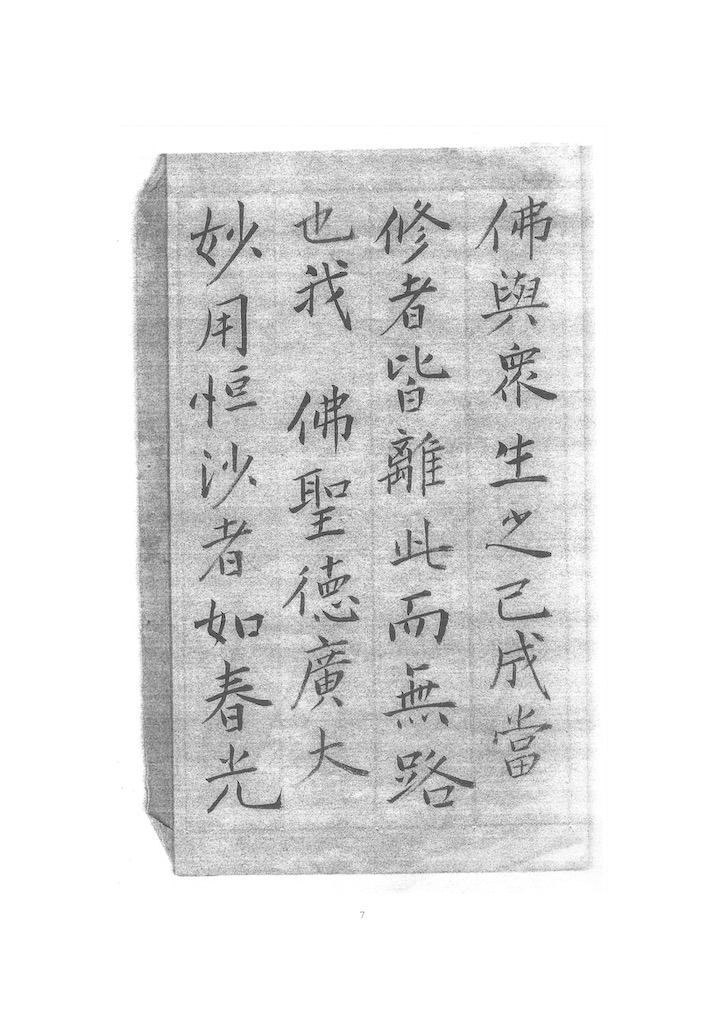 佛與衆生之已成當
修者皆離此而無路
也我　佛聖德廣大
妙用恒沙者如春光
7